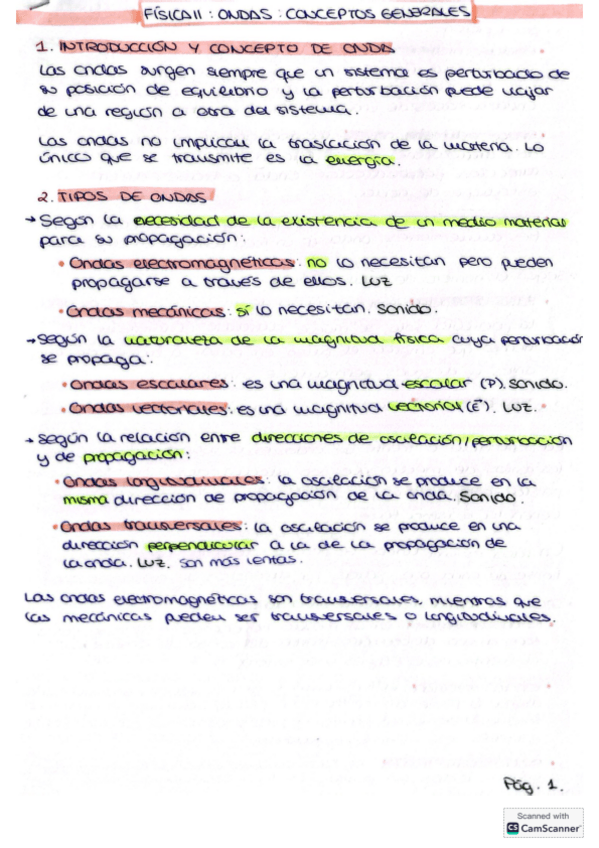 FÍSICA II : ONDAS : CONCEPTOS GENERALES
1. INTRODUCCIÓN Y CONCEPTO DE ONDA
Las ondas surgen siempre que un sistema es perturbado de
su posición de equilibrio y la perturbación puede viajar
de una región a otra del sistema.
Las ondas no implican la traslación de la materia. Lo
único que se transmite es la energía.
2. TIPOS DE ONDAS
→ Según la necesidad de la existencia de un medio material
para su propagación:
• Ondas electromagnéticas: no lo necesitan pero pueden
propagarse a través de ellos. LUZ
• Ondas mecánicas: sí lo necesitan. Sonido.
→ Según la naturaleza de la magnitud física cuya perturbación
se propaga:
• Ondas escalares: es una magnitud escalar (P). Sonido.
• Ondas vectoriales: es una magnitud vectorial (E⃗). LUZ.
→ Según la relación entre direcciones de oscilación/perturbación
y de propagación:
• Ondas longitudinales: la oscilación se produce en la
misma dirección de propagación de la onda. Sonido.
• Ondas transversales: la oscilación se produce en una
dirección perpendicular a la de la propagación de
la onda. LUZ. son más lentas.
Las ondas electromagnéticas son transversales, mientras que
las mecánicas pueden ser transversales o longitudinales.
Pág. 1.
Scanned with
CS CamScanner